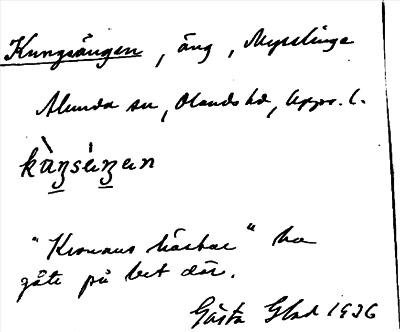 Kungsängen, äng, Myrslinge
Alunda sn, Olands hd, Upps. l.
kàŋsèŋen
"Kronans hästar" ha
gått på bet där.
Gösta Glad 1936